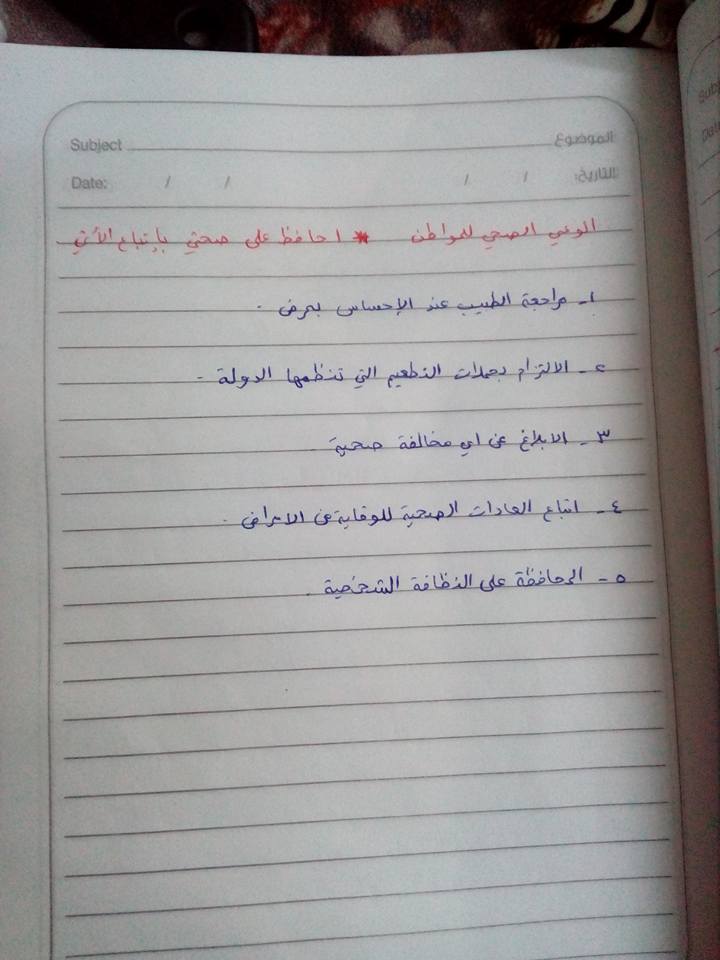 Subject الموضوع
Date: / / / / التاريخ:
الوعي الصحي للمواطن * احافظ على صحتي بإتباع الأتي
١- مراجعة الطبيب عند الإحساس بمرض .
٢- الالتزام بحملات التطعيم التي تنظمها الدولة .
٣- الابلاغ عن اي مخالفة صحية .
٤- اتباع العادات الصحية للوقاية من الامراض .
٥- المحافظة على النظافة الشخصية .